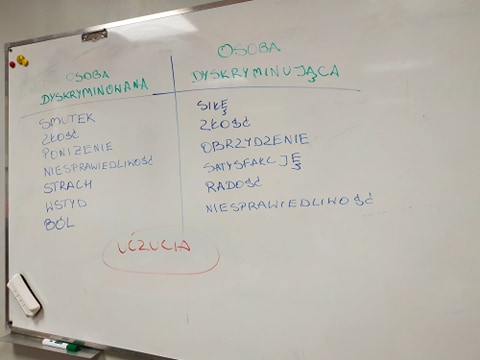 OSOBA
DYSKRYMINOWANA
SMUTEK
ZŁOŚĆ
PONIŻENIE
NIESPRAWIEDLIWOŚĆ
STRACH
WSTYD
BÓL
OSOBA
DYSKRYMINUJĄCA
SIŁĘ
ZŁOŚĆ
OBRZYDZENIE
SATYSFAKCJĘ
RADOŚĆ
NIESPRAWIEDLIWOŚĆ
UCZUCIA